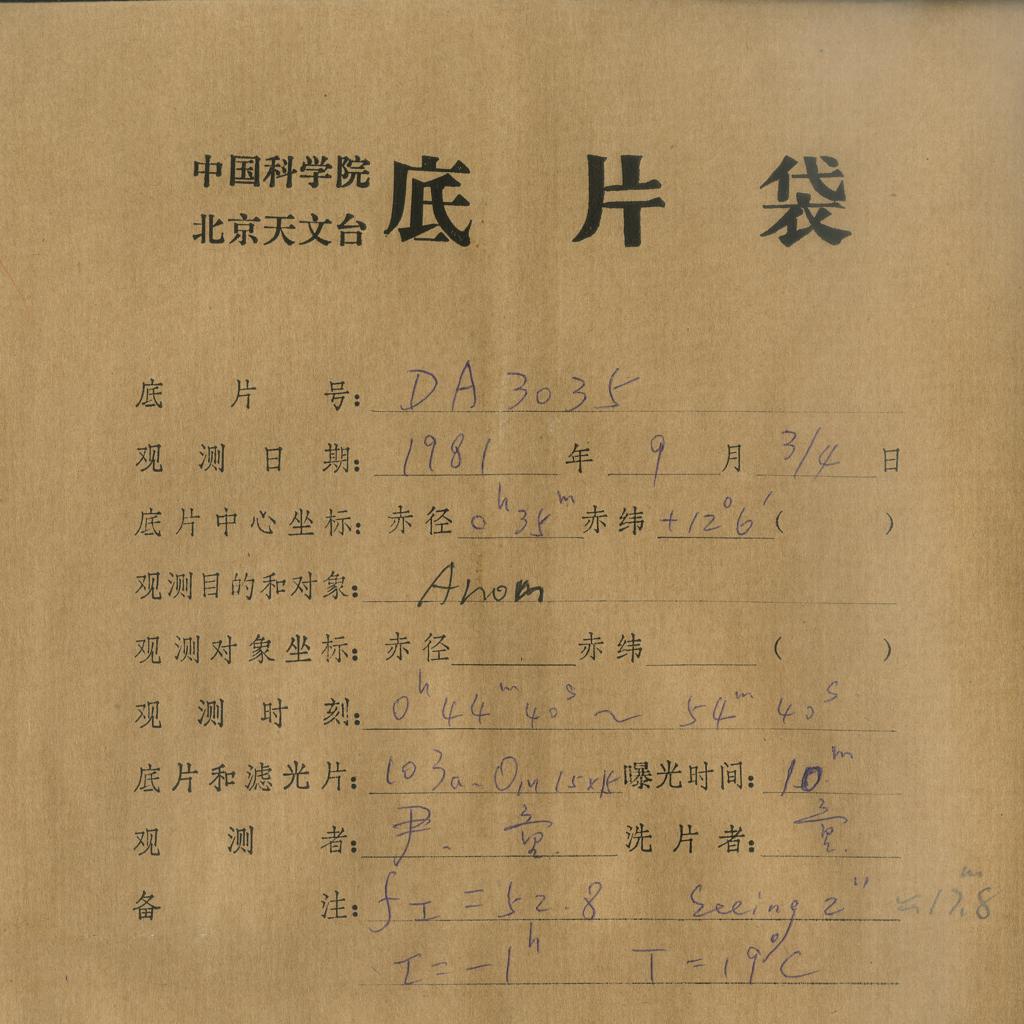 中国科学院
北京天文台
底片袋
底片号: DA 3035
观测日期: 1981 年 9 月 3/4 日
底片中心坐标: 赤径 0h 35m 赤纬 +12°6′ ( )
观测目的和对象: Anom
观测对象坐标: 赤径 赤纬 ( )
观测时刻: 0h 44m 40s ~ 54m 40s
底片和滤光片: 103a-O, 15×15 曝光时间: 10m
观测者: 尹. 童 洗片者: 童
备注: fI = 52.8 Seeing 2″ ≈17m.8
τ=-1h T=19°C